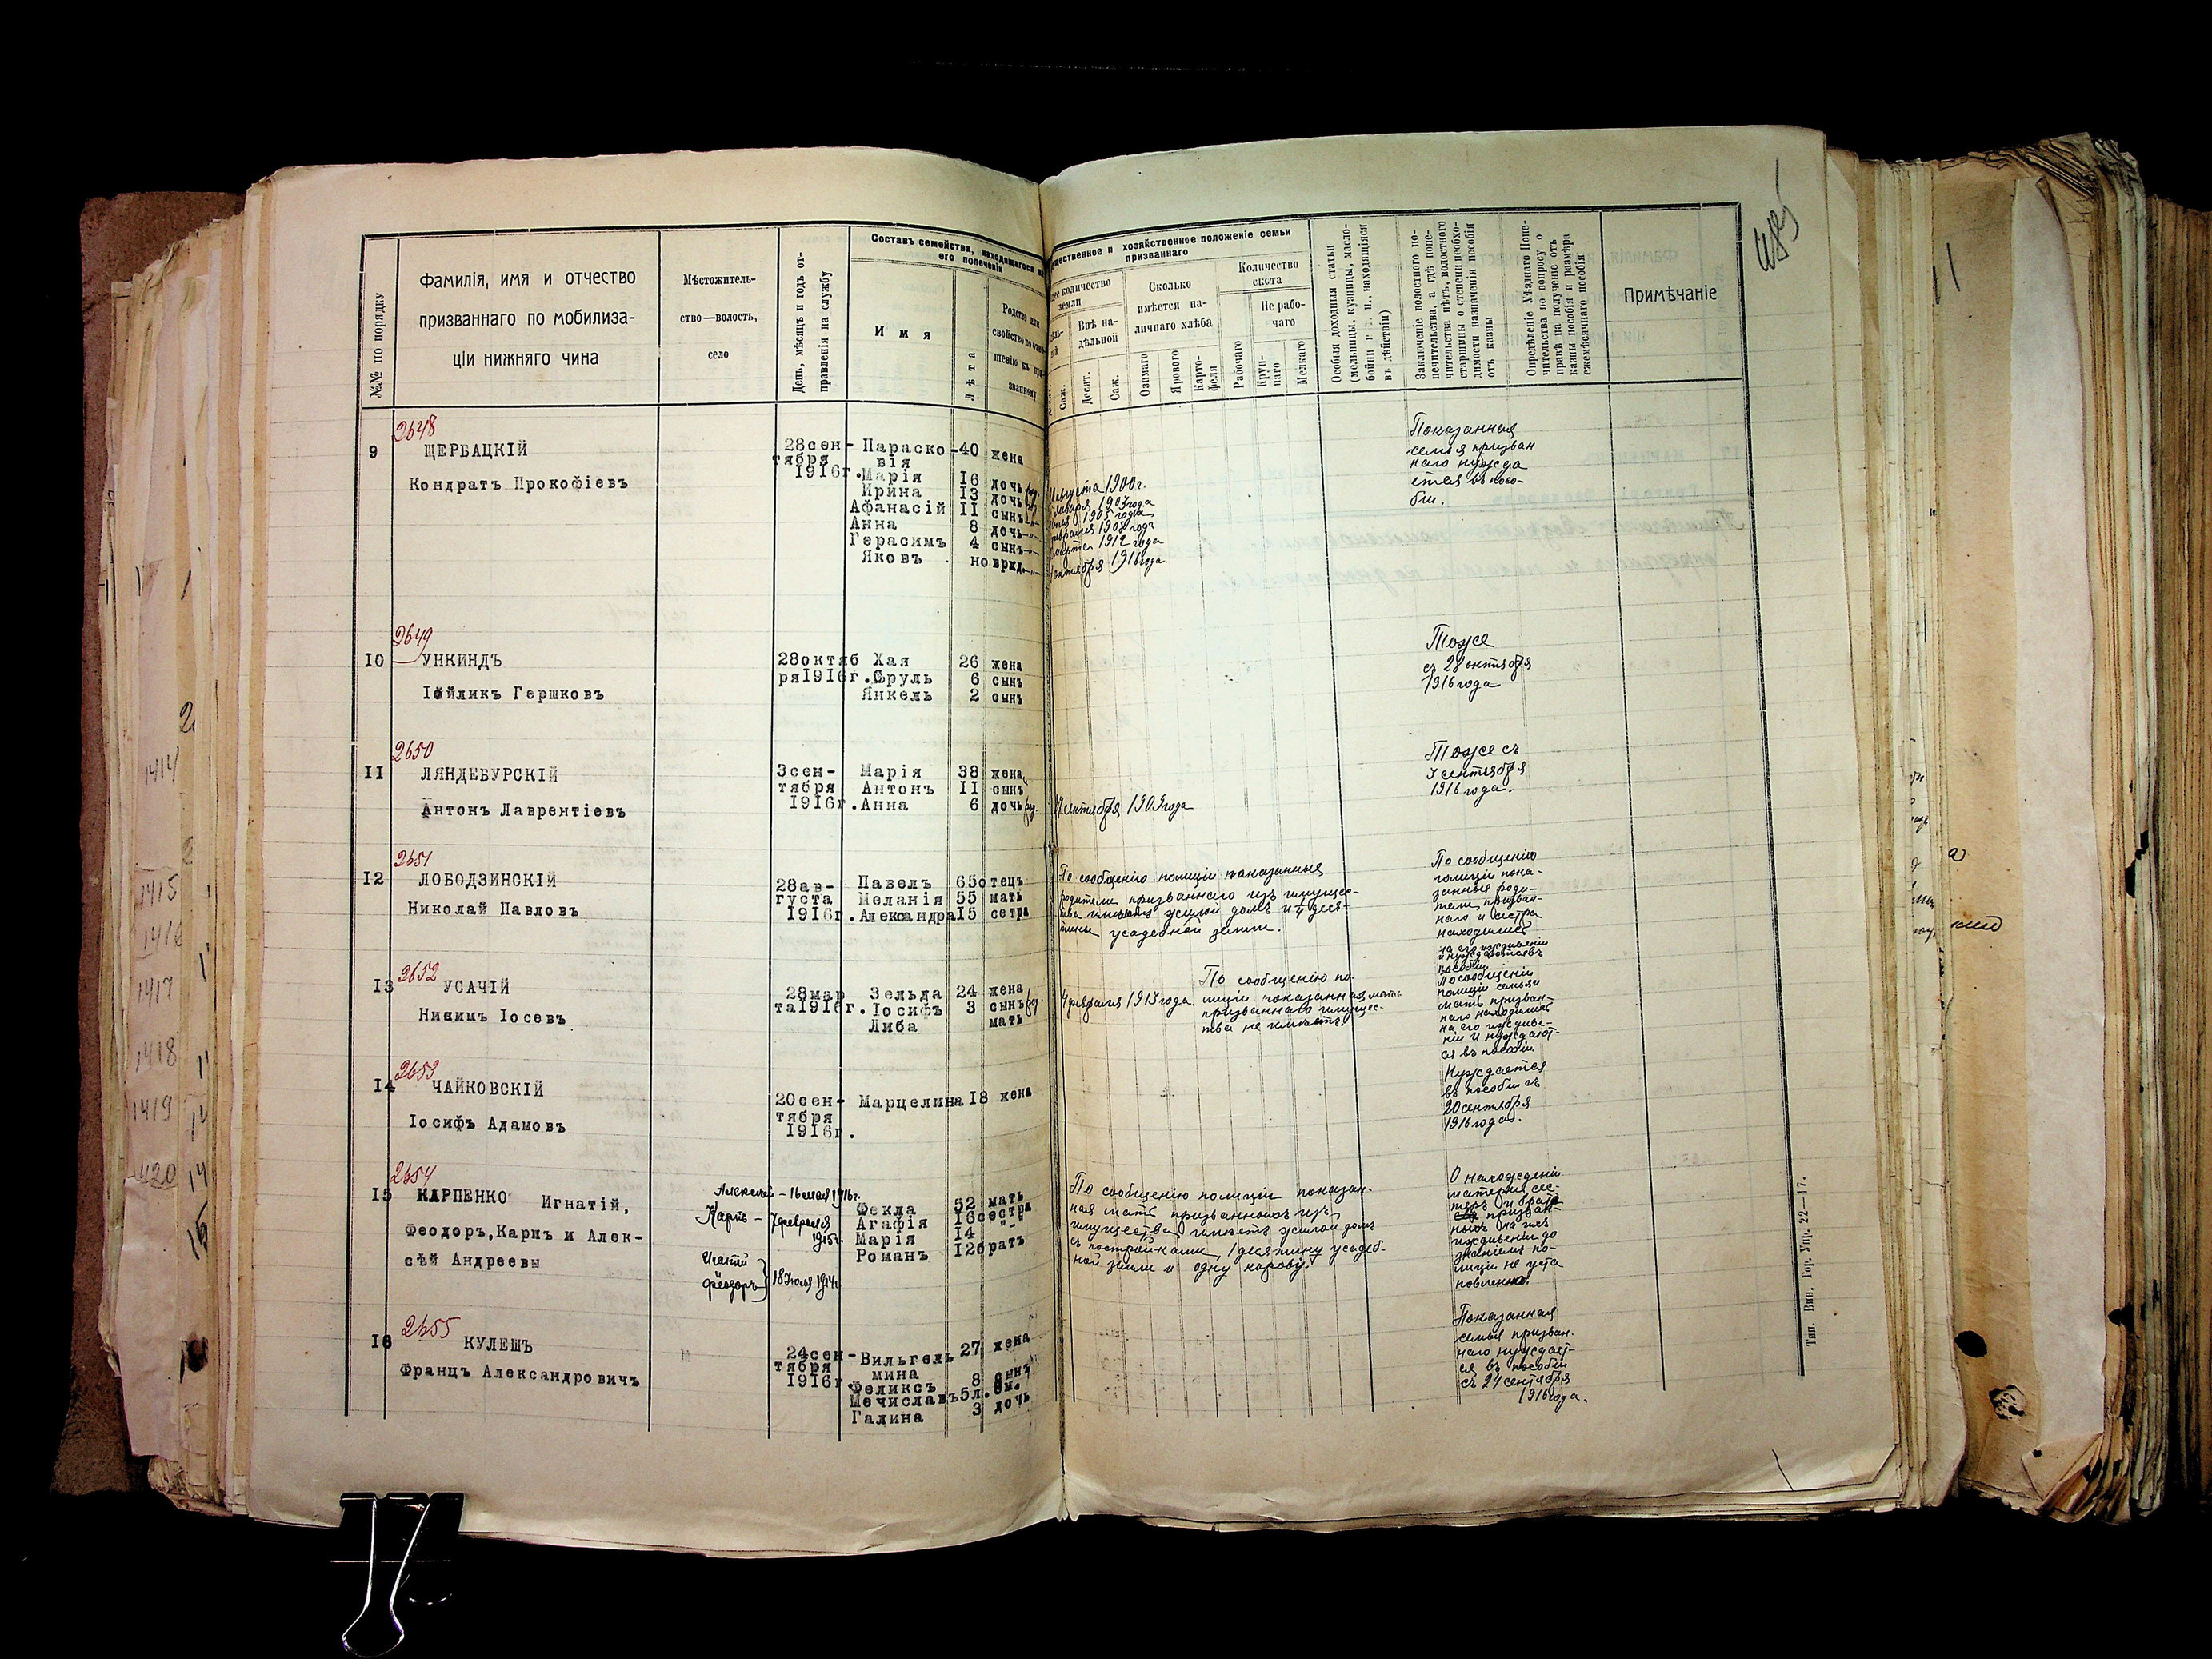 №№ по порядку
Фамилія, имя и отчество
призваннаго по мобилиза-
ціи нижняго чина
Мѣстожитель-
ство—волость,
село
День, мѣсяцъ и годъ от-
правленія на службу
Составъ семейства, находящагося на
его попеченіи
Имя
Лѣта
Родство или
свойство по отно-
шенію къ при-
званному
ущественное и хозяйственное положеніе семьи
призваннаго
количество
земли
Внѣ на-
дѣльной
Саж.
Десят.
Саж.
Сколько
имѣется на-
личнаго хлѣба
Озимаго
Ярового
Карто-
феля
Количество
скота
Рабочаго
Не рабо-
чаго
Круп-
наго
Мелкаго
Особыя доходныя статьи
(мельницы, кузницы, масло-
бойни и т. п., находящіяся
въ дѣйствіи)
Заключеніе волостного по-
печительства, а гдѣ попе-
чительства нѣтъ, волостного
старшины о степени необхо-
димости назначенія пособія
отъ казны
Опредѣленіе Уѣзднаго Попе-
чительства по вопросу о
правѣ на полученіе отъ
казны пособія и размѣра
ежемѣсячнаго пособія
Примѣчаніе
2648
9 ЩЕРБАЦКІЙ
Кондратъ Прокофіевъ
28сен-
тября
1916г.
Параско-
вія 40 жена
Марія 16 дочь августа 1900г.
Ирина 13 дочь января 1903года
Афанасій 11 сынъ 1905 года
Анна 8 дочь февраля 1908 года
Герасимъ 4 сынъ марта 1912 года
Яковъ новржд. сентября 1916года
Показанная
семья призван
наго нужда
ется въ посо-
біи.
2649
10 УНКИНДЪ
Іойликъ Гершковъ
28октяб
ря1916г.
Хая 26 жена
Сруль 6 сынъ
Янкель 2 сынъ
Тоже
съ 28 октября
1916 года
2650
11 ЛЯНДЕБУРСКІЙ
Антонъ Лаврентіевъ
3сен-
тября
1916г.
Марія 38 жена
Антонъ 11 сынъ
Анна 6 дочь
сентября 1909года
Тоже съ
3 сентября
1916 года.
2651
12 ЛОБОДЗИНСКІЙ
Николай Павловъ
28ав-
густа
1916г.
Павелъ 65 отецъ
Меланія 55 мать
Александра 15 сетра
По сообщенію полиціи показанные
родители призваннаго изъ имущес-
тва имѣютъ жилой домъ и деся-
тины усадебной земли.
По сообщенію
полиціи пока-
занные роди-
тели призван-
наго и сестра
находились
на его иждивеніи
и нуждаются въ
пособіи.
2652
13 УСАЧІЙ
Нисимъ Іосевъ
28мар
та1916г.
Зельда 24 жена
Іосифъ 3 сынъ
Либа мать
4 февраля 1913 года.
По сообщенію по-
лиціи показанная мать
призваннаго имущес-
тва не имѣетъ.
По сообщенію
полиціи семья и
мать призван-
наго находились
на его иждиве-
ніи и нуждают-
ся въ пособіи.
2653
14 ЧАЙКОВСКІЙ
Іосифъ Адамовъ
20сен-
тября
1916г.
Марцелина 18 жена
Нуждается
въ пособіи съ
20 сентября
1916 года.
2654
15 КАРПЕНКО Игнатій,
Феодоръ, Карпъ и Алек-
сѣй Андреевы
Алексѣй — 16 мая 1916г.
Карпъ — 7 февраля
1915г.
Игнатій
Феодоръ } 18 Іюля 1914г.
Фекла 52 мать
Агафія 16 сестра
Марія 14 -"-
Романъ 12 братъ
По сообщенію полиціи показан-
ная мать призванныхъ изъ
имущества имѣетъ жилой домъ
съ постройками, 1 десятину усадеб-
ной земли и одну корову.
О нахожденіи
матери, сес-
теръ и брата
призван-
ныхъ на ихъ
иждивеніи до
знаніемъ по-
лиціи не уста
новлено.
2655
16 КУЛЕШЪ
Францъ Александровичъ
24сен-
тября
1916г.
Вильгель
мина 27 жена
Феликсъ 8 сынъ
Мечиславъ 5л.
Галина 3 дочь
Показанная
семья призван.
наго нуждает-
ся въ пособіи
съ 24 сентября
1916 года.
Тип. Вин. Гор. Упр. 22—17.
1414
1415
1416
1417
1418
1419
1420